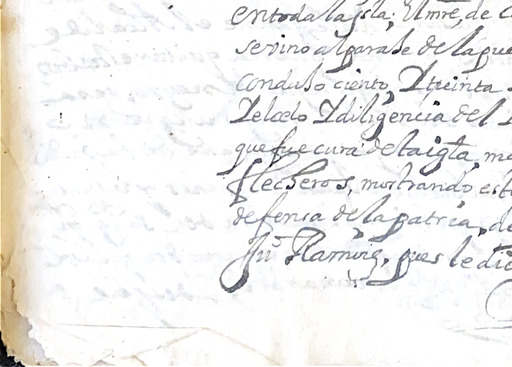 en toda la Ysla; El mre, de c
se vino al paraje de la pue
condujo ciento, Y treinta
Y el celo Y diligencia del
que fue cura de la igla, m
flecheros, mostrando est
defensa de la patria, de
Ju.º Ramirz, pues le dio